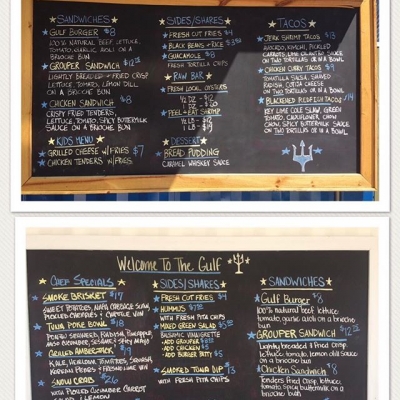 SANDWICHES
GULF BURGER $8
100% NATURAL BEEF, LETTUCE,
TOMATO, GARLIC AIOLI ON
A BRIOCHE BUN
GROUPER SANDWICH $12.95
LIGHTLY BREADED + FRIED CRISP
LETTUCE, TOMATO, LEMON DILL
ON A BRIOCHE BUN
CHICKEN SANDWICH $8
CRISPY FRIED TENDERS,
LETTUCE, TOMATO, SPICY BUTTERMILK
SAUCE ON A BRIOCHE BUN
KIDS MENU
GRILLED CHEESE W/FRIES $7
CHICKEN TENDERS W/FRIES
SIDES/SHARES
FRESH CUT FRIES $4
BLACK BEANS + RICE $3.50
GUACAMOLE
FRESH TORTILLA CHIPS
RAW BAR
FRESH LOCAL OYSTERS
1/2 DZ
1 DZ
PEEL + EAT SHRIMP
1/2 LB
1 LB
DESSERT
BREAD PUDDING
CARAMEL WHISKEY SAUCE
TACOS
JERK SHRIMP TACOS $13
AVOCADO, KIMCHI, PICKLED
CARROTS, LIME CILANTRO SAUCE
ON TWO TORTILLAS OR IN A BOWL
CHICKEN CURRY TACOS $9
TOMATILLO SALSA, SHAVED
RADISH, COTIJA CHEESE
ON TWO TORTILLAS OR IN A BOWL
BLACKENED REDFISH TACOS $14
KEY LIME SLAW, GREEN
TOMATO, CAULIFLOWER CHOW
CHOW, SPICY BUTTERMILK SAUCE
ON TWO TORTILLAS OR IN A BOWL
WELCOME TO THE GULF
CHEF SPECIALS
SMOKE BRISKET $17
SWEET POTATOES, NAPA CABBAGE SLAW,
PICKLED
TUNA POKE BOWL $18
RADISH, PINEAPPLE,
CUCUMBER, SESAME + SPICY MAYO
GRILLED AMBERJACK $19
KALE, HEIRLOOM TOMATOES, SQUASH,
SNOW CRAB $26
WITH PICKLED CUCUMBER, CARROT
LEMON
SIDES/SHARES
FRESH CUT FRIES $4
HUMMUS $7
WITH FRESH PITA CHIPS
MIXED GREEN SALAD $5
BALSAMIC VINAIGRETTE
-ADD GROUPER
-ADD CHICKEN $5
-ADD BURGER PATTY $5
SMOKED TUNA DIP
WITH FRESH PITA CHIPS
SANDWICHES
Gulf Burger $8
100% natural beef, lettuce
tomato, garlic aioli on a brioche
bun
GROUPER SANDWICH $12.95
Lightly breaded + Fried Crisp
lettuce, tomato, lemon dill sauce
on a brioche bun
Chicken Sandwich $8
Tenders Fried Crisp, lettuce,
tomato, Spicy buttermilk on a
brioche bun